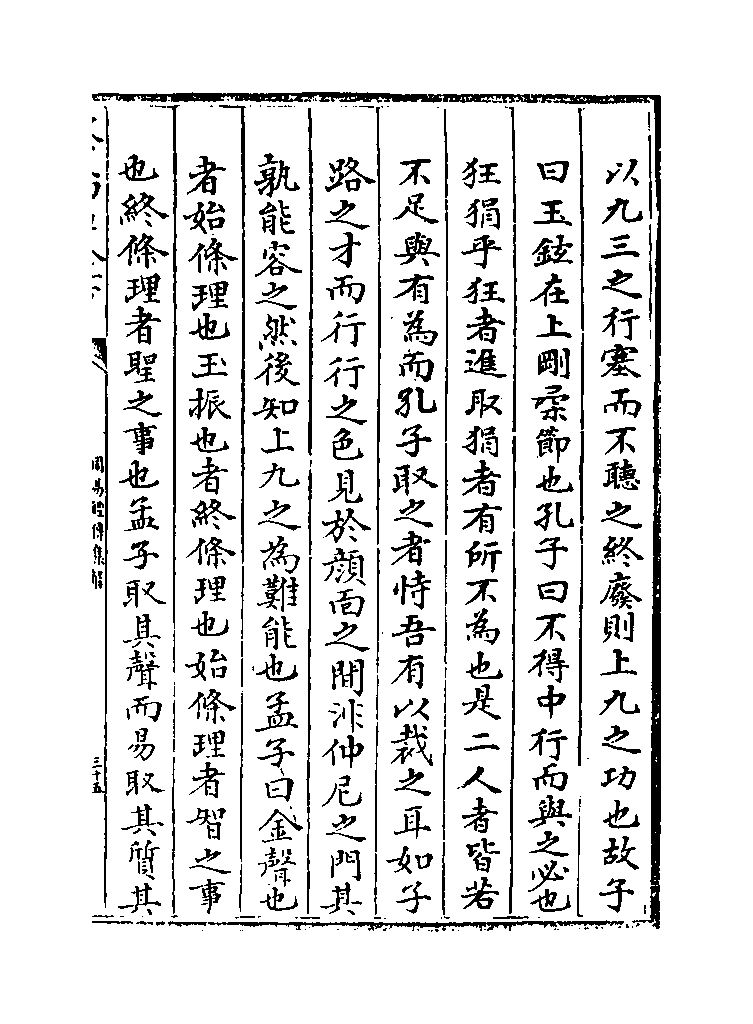 以九三之行塞而不聽之終廢則上九之功也故子
曰玉鉉在上剛柔節也孔子曰不得中行而與之必也
狂狷乎狂者進取狷者有所不為也是二人者皆若
不足與有為而孔子取之者恃吾有以裁之耳如子
路之才而行行之色見於顔面之間非仲尼之門其
孰能容之然後知上九之為難能也孟子曰金聲也
者始條理也玉振也者終條理也始條理者智之事
也終條理者聖之事也孟子取其聲而易取其質其
周易經傳集解
三十五